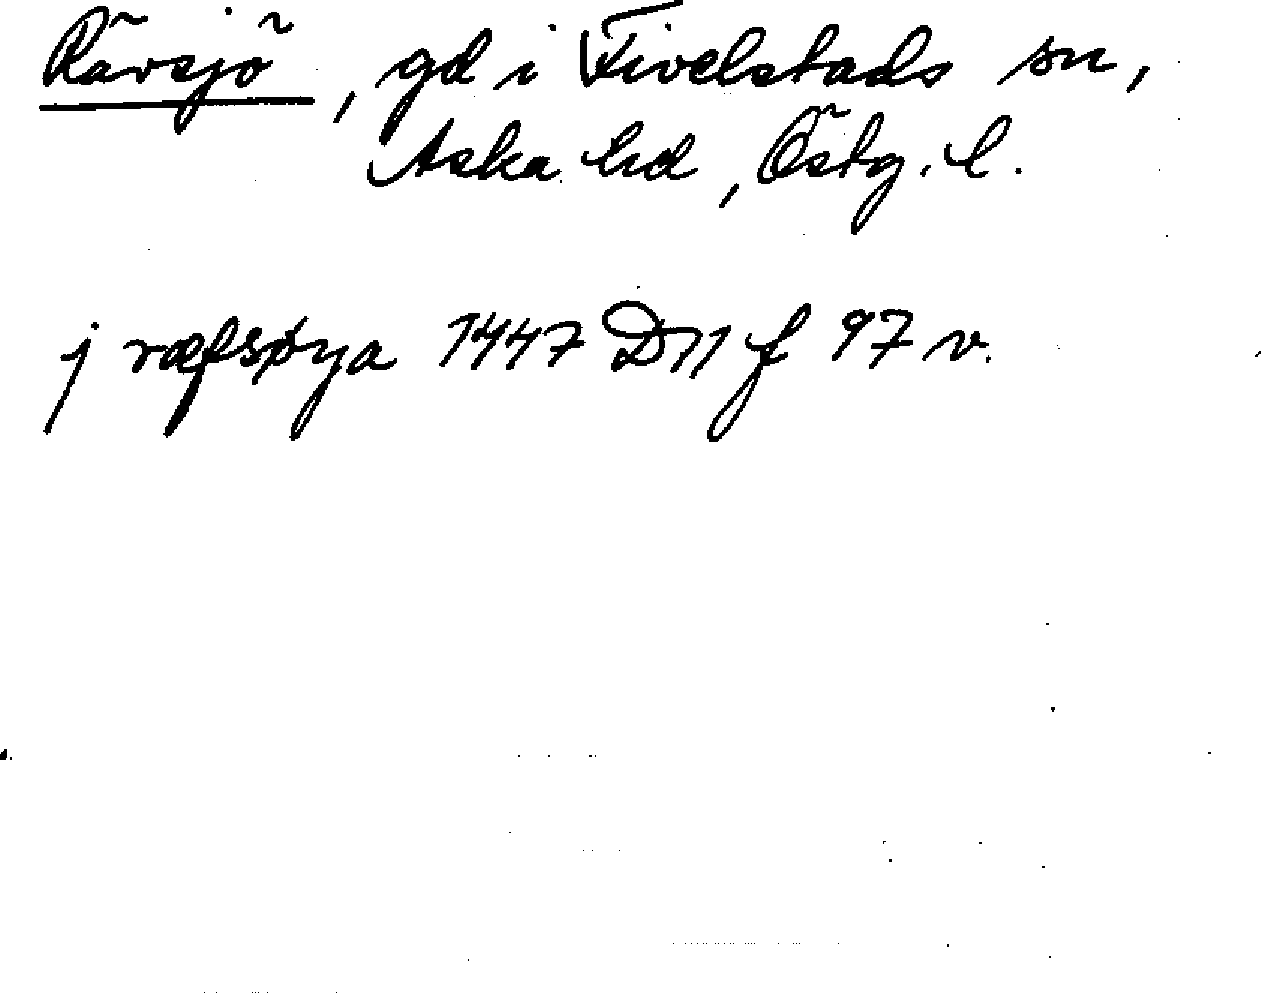 Rävsjö, gd i Fivelstads sn,
Aska hd, Östg. l.
j ræfsøya 1447 D11 f 97 v.